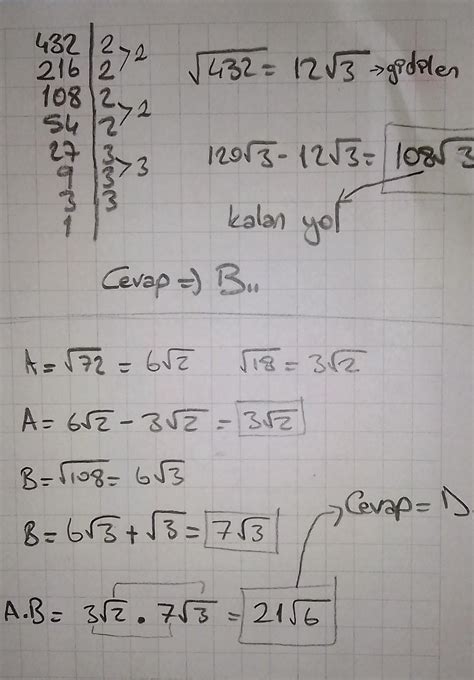 432 | 2 > 2
216 | 2
108 | 2 > 2
54 | 2
27 | 3 > 3
9 | 3
3 | 3
1
√432 = 12√3 → gidilen
120√3 - 12√3 = 108√3
kalan yol
Cevap => B..
A = √72 = 6√2 √18 = 3√2
A = 6√2 - 3√2 = 3√2
B = √108 = 6√3
B = 6√3 + √3 = 7√3
→ Cevap = D
A.B = 3√2 . 7√3 = 21√6